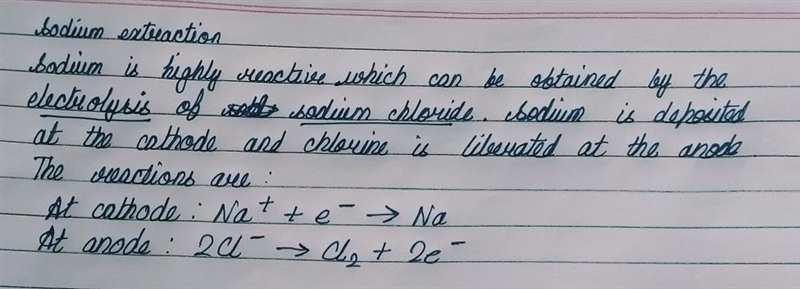 Sodium extraction
Sodium is highly reactive which can be obtained by the
electrolysis of sodium chloride. Sodium is deposited
at the cathode and chlorine is liberated at the anode.
The reactions are :
At cathode : Na⁺ + e⁻ → Na
At anode : 2Cl⁻ → Cl₂ + 2e⁻